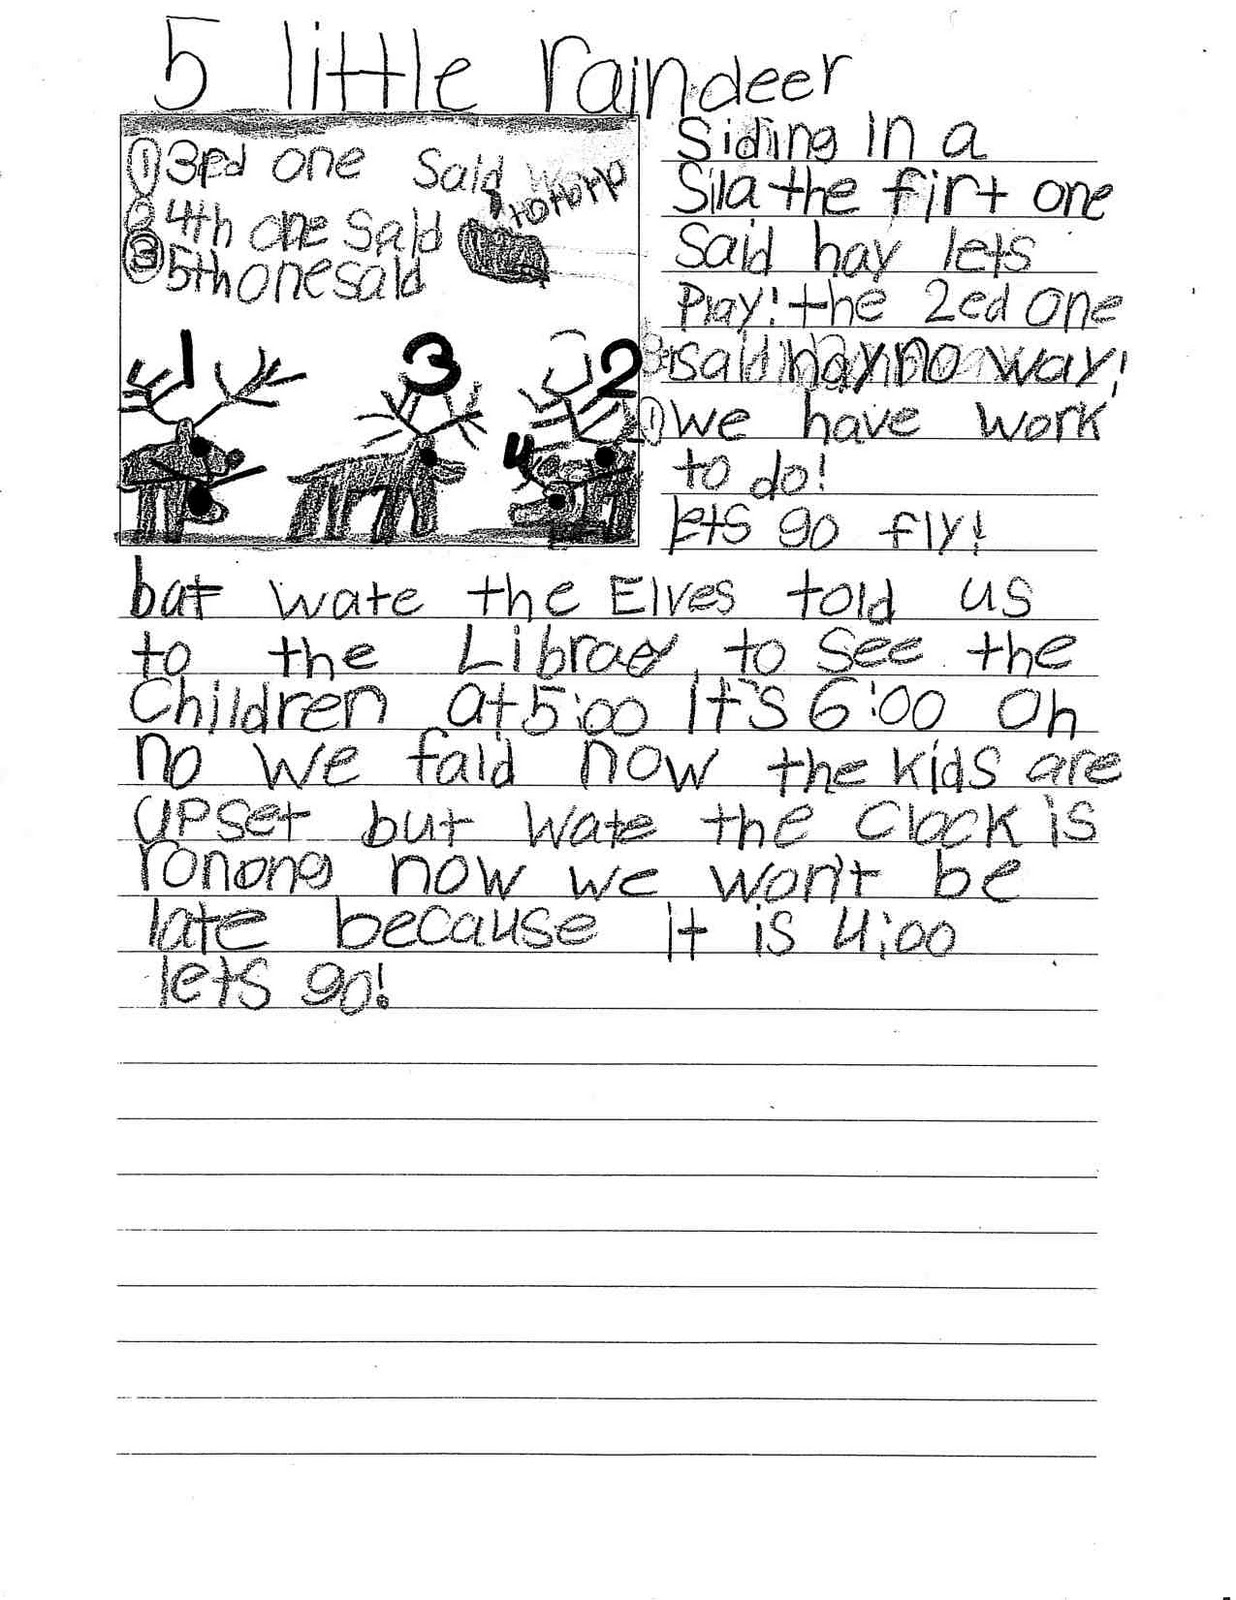 5 little raindeer
① 3rd one said
② 4th one said
③ 5th one said
1 3 2
4
Siding In a
Sila the firt one
Said hay lets
Play! the 2ed one
said hay no way!
① we have work
to do!
lets go fly!
bat wate the Elves told us
to the Libraey to see the
Children at 5:00 It's 6:00 Oh
no we fald now the kids are
upset but wate the Clock is
ronong now we won't be
late because it is 4:00
lets go!